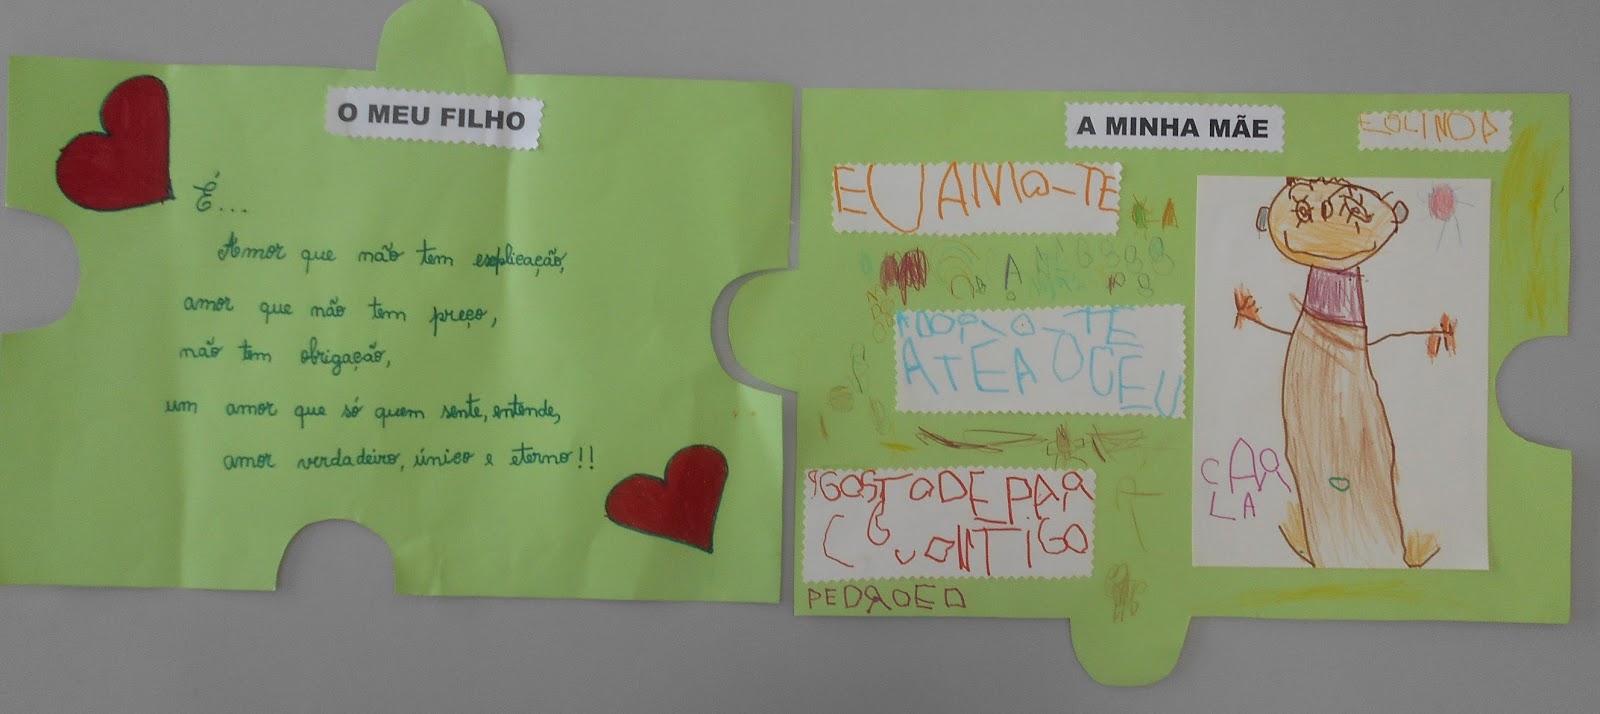 O MEU FILHO
É...
Amor que não tem explicação,
amor que não tem preço,
não tem obrigação,
um amor que só quem sente, entende,
amor verdadeiro, único e eterno!!
A MINHA MÃE
EOLINDA
EU AMO-TE
ADORO-TE
ATEAOCEU
GOSTODE
CONTIGO
PEDRO
CAR
LA